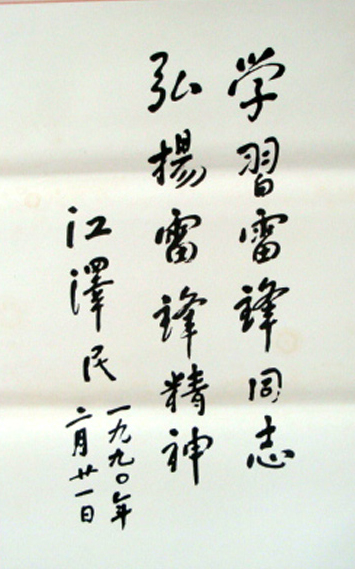 学習雷鋒同志
弘揚雷鋒精神
江澤民
一九九〇年
二月廿一日